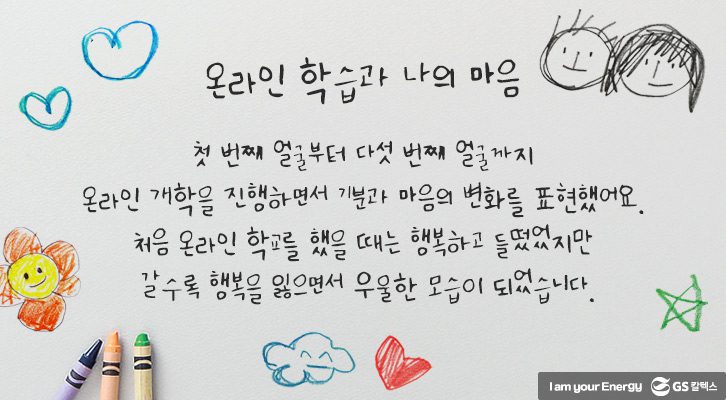 온라인 학습과 나의 마음
첫 번째 얼굴부터 다섯 번째 얼굴까지
온라인 개학을 진행하면서 기분과 마음의 변화를 표현했어요.
처음 온라인 학교를 했을 때는 행복하고 들떴었지만
갈수록 행복을 잃으면서 우울한 모습이 되었습니다.
I am your Energy GS칼텍스